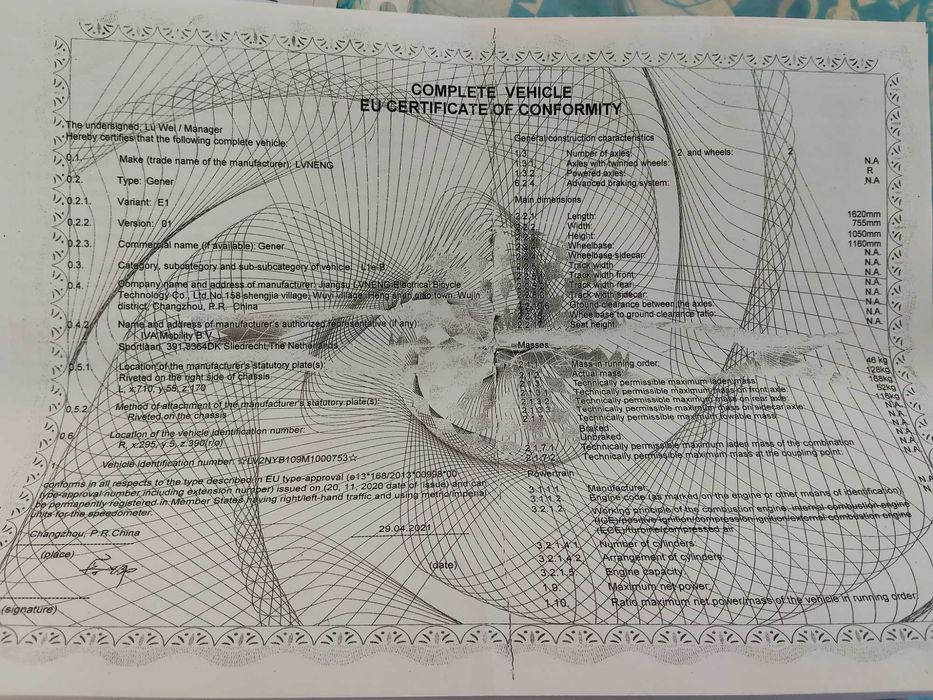 COMPLETE VEHICLE
EU CERTIFICATE OF CONFORMITY
The undersigned, Lu Wei / Manager
Hereby certifies that the following complete vehicle:
0.1. Make (trade name of the manufacturer): LVNENG
0.2. Type: Gener
0.2.1. Variant: E1
0.2.2. Version: 01
0.2.3. Commercial name (if available): Gener
0.3. Category, subcategory and sub-subcategory of vehicle: L1e-B
0.4. Company name and address of manufacturer: Jiangsu LVNENG Electrical Bicycle
Technology Co., Ltd,No.158 shengjia village, Wuyi village, Heng shan qiao town, Wujin
district, Changzhou, P.R. China
0.4.2. Name and address of manufacturer's authorized representative (if any):
IVA Mobility B.V.
Sportlaan, 391,3364DK Sliedrecht,The Netherlands
0.5.1. Location of the manufacturer's statutory plate(s):
Riveted on the right side of chassis
L, x:710, y:55, z:170
0.5.2. Method of attachment of the manufacturer's statutory plate(s):
Riveted on the chassis
0.6. Location of the vehicle identification number:
R, x:295, y:5, z:390(r/o)
1. Vehicle identification number: ☆LV2NYB109M1000753☆
conforms in all respects to the type described in EU type-approval (e13*168/2013*00998*00
type-approval number including extension number) issued on (20, 11, 2020 date of issue) and can
be permanently registered in Member States having right/left-hand traffic and using metric/imperial
units for the speedometer.
Changzhou, P.R.China
29.04.2021
(place)
(date)
(signature)
General construction characteristics
1.3. Number of axles: 2 and wheels: 2
1.3.1. Axles with twinned wheels: N.A
1.3.2. Powered axles: R
6.2.4. Advanced braking system: N.A
Main dimensions
2.2.1. Length: 1620mm
2.2.2. Width: 755mm
2.2.3. Height: 1050mm
2.2.4. Wheelbase: 1160mm
Wheelbase sidecar: N.A.
Track width N.A.
Track width front: N.A.
Track width rear: N.A.
Track width sidecar: N.A.
Ground clearance between the axles: N.A.
Wheelbase to ground clearance ratio: N.A.
Seat height: N.A.
Masses
Mass in running order: 46 kg
Actual mass: 128kg
Technically permissible maximum laden mass: 168kg
2.1.3.1. Technically permissible maximum mass on front axle: 52kg
2.1.3.2. Technically permissible maximum mass on rear axle: 116kg
2.1.3.3. Technically permissible maximum mass on sidecar axle: N.A.
2.1.7. Technically permissible maximum towable mass: N.A.
Braked: N.A.
Unbraked: N.A.
2.1.7.1. Technically permissible maximum laden mass of the combination N.A.
2.1.7.2. Technically permissible maximum mass at the coupling point:
Powertrain
3.1.1.1. Manufacturer:
3.1.1.2. Engine code (as marked on the engine or other means of identification)
3.2.1.2. Working principle of the combustion engine: internal combustion engine
(ICE)/positive ignition/compression ignition/external combustion engine
(ECE)/turbine/compressed air
3.2.1.4.1. Number of cylinders:
3.2.1.4.2. Arrangement of cylinders:
3.2.1.5. Engine capacity:
1.9. Maximum net power:
1.10. Ratio maximum net power/mass of the vehicle in running order: